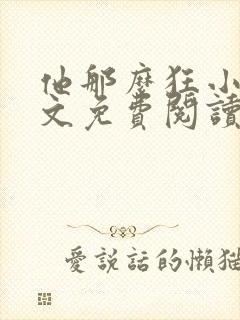 他那麼狂小
文免費閱讀
愛說話的懶猫